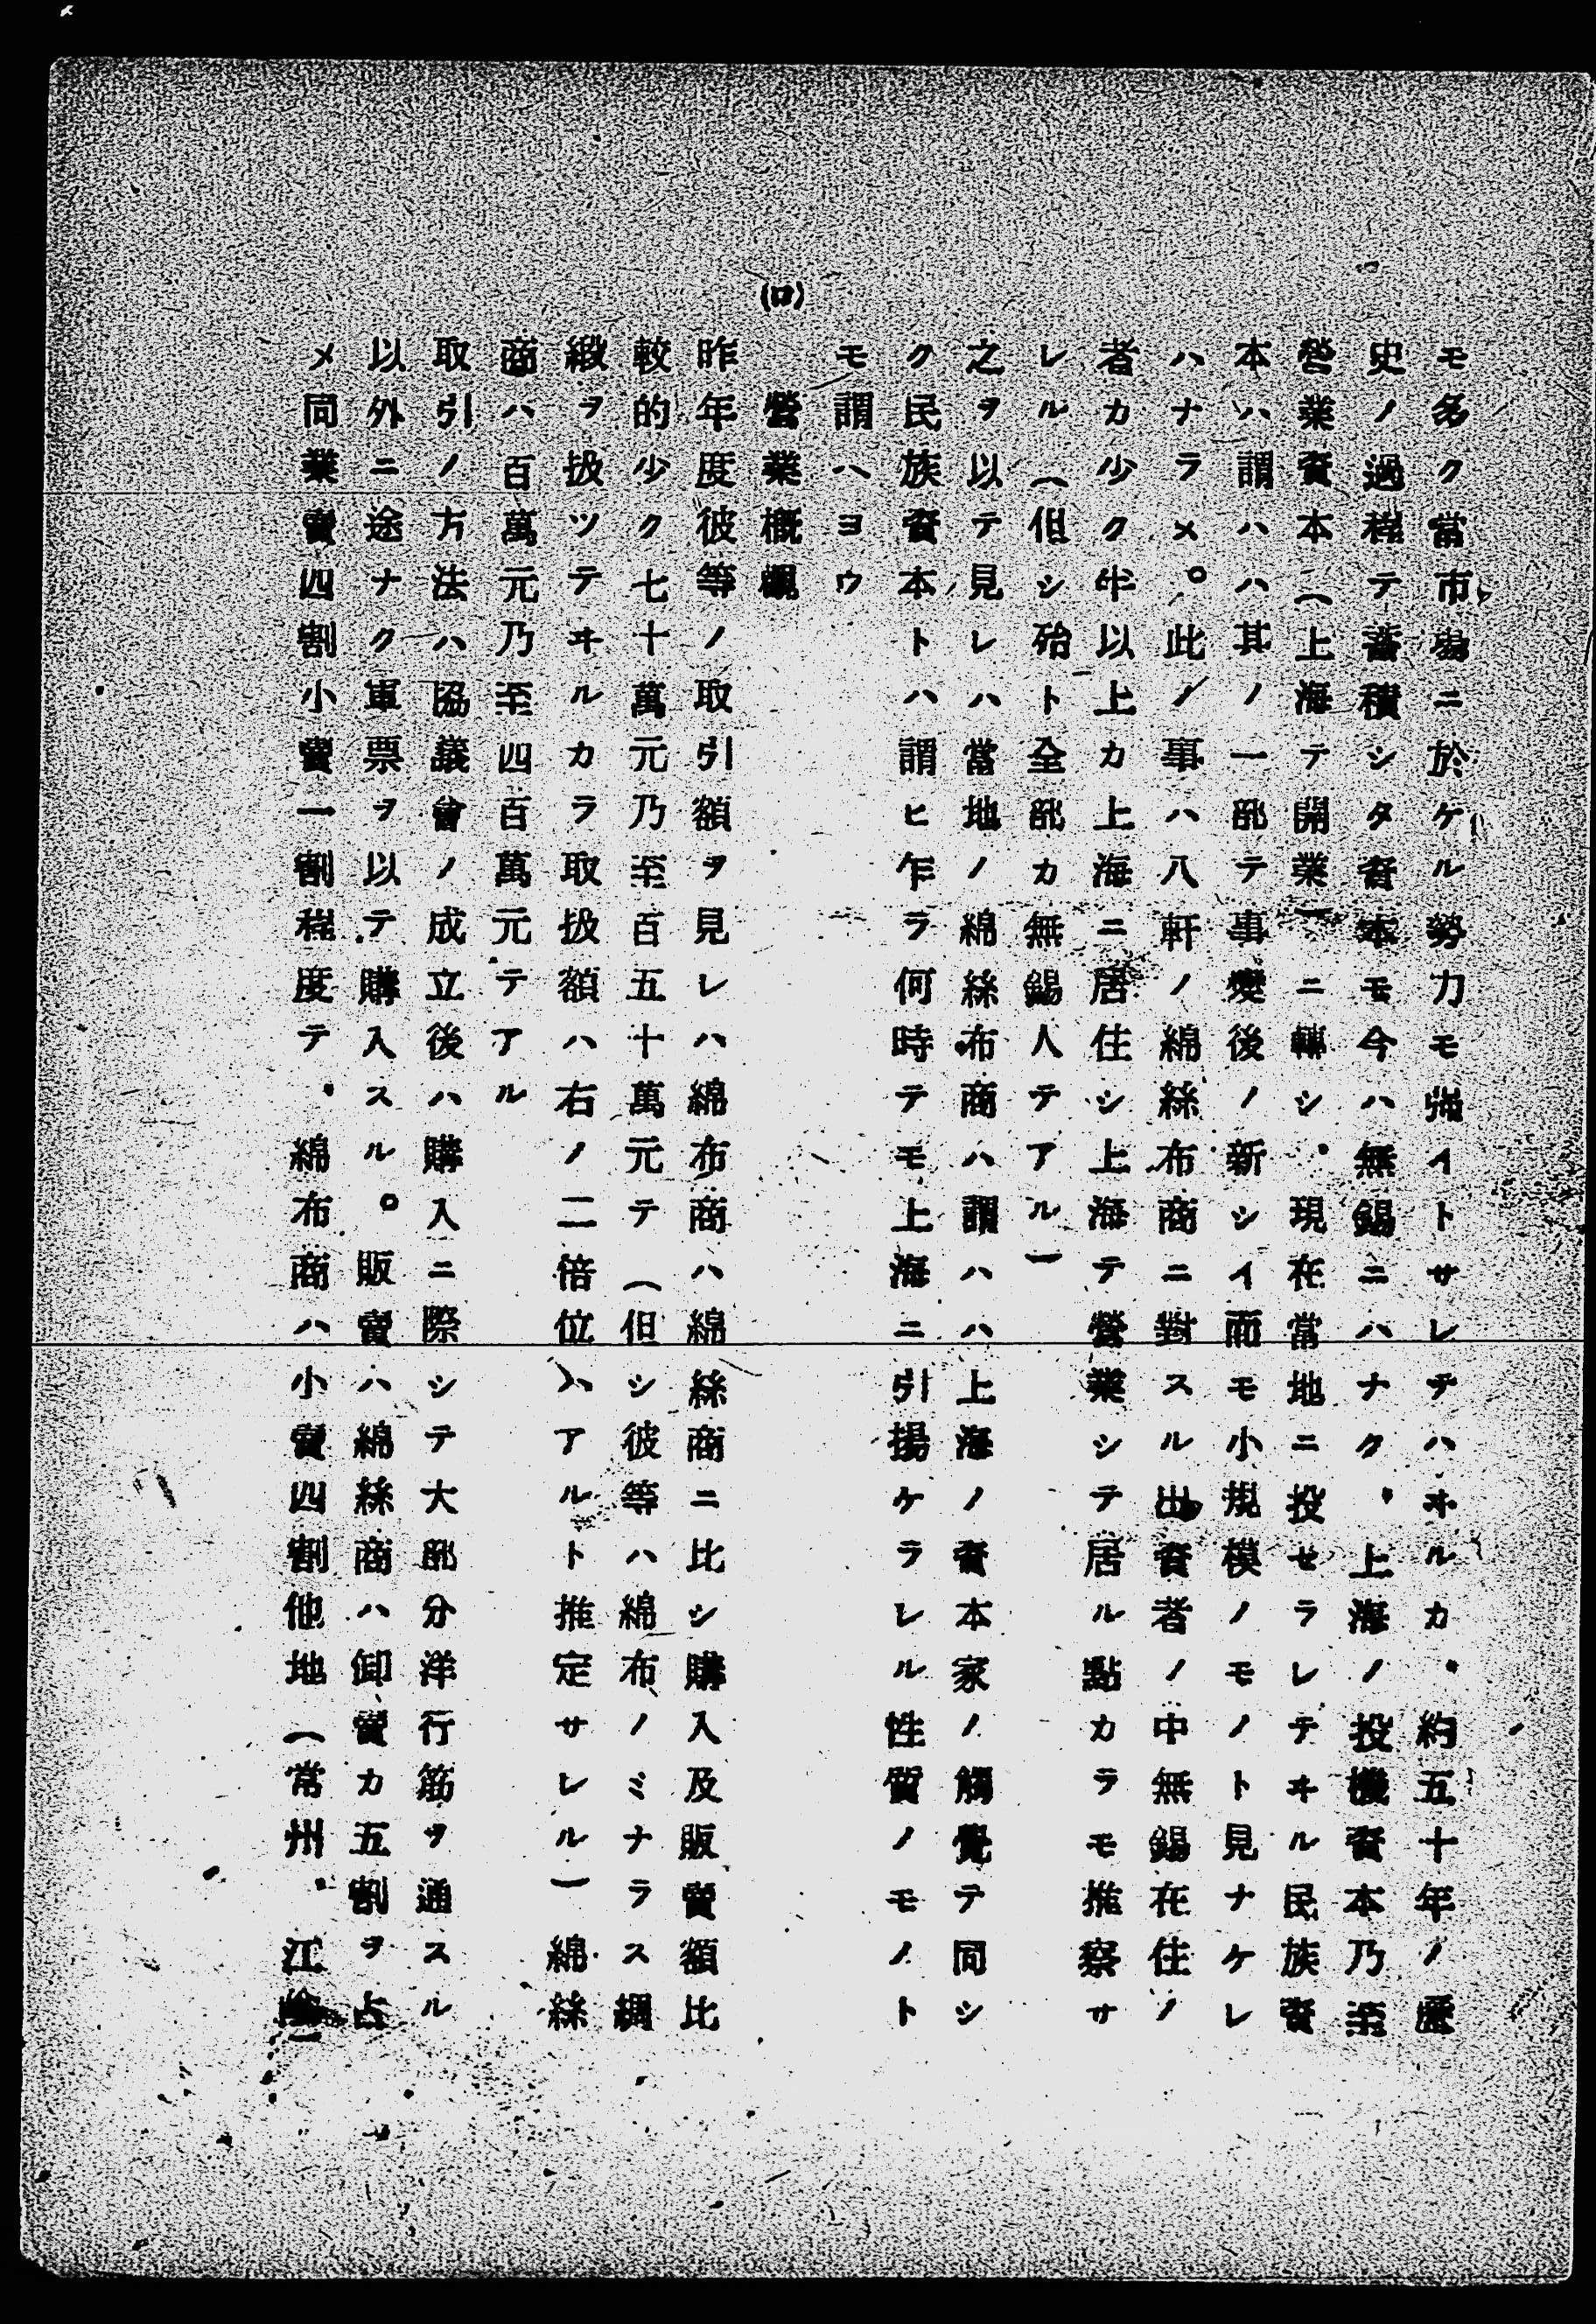 モ多ク當市場ニ於ケル勞力モ強イトサレテハヰルカ、約五十年ノ歷
史ノ過程テ蓄積シタ資本モ今ハ無錫ニハナク、上海ノ投機資本乃至
營業資本（上海テ開業）ニ轉シ、現在當地ニ投セラレテヰル民族資
本ハ謂ハハ其ノ一部テ事變後ノ新シイ而モ小規模ノモノト見ナケレ
ハナラメ。此ノ事ハ八軒ノ綿絲布商ニ對スル出資者ノ中無錫在住ノ
者カ少ク半以上カ上海ニ居住シ上海テ營業シテ居ル點カラモ推察サ
レル（但シ殆ト全部カ無錫人テアル）
之ヲ以テ見レハ當地ノ綿絲布商ハ謂ハハ上海ノ資本家ノ觸覺テ同シ
ク民族資本トハ謂ヒ乍ラ何時テモ上海ニ引揚ケラレル性質ノモノト
モ謂ヘヨウ
(ロ) 營業概觀
昨年度彼等ノ取引額ヲ見レハ綿布商ハ綿絲商ニ比シ購入及販賣額比
較的少ク七十萬元乃至百五十萬元テ（但シ彼等ハ綿布ノミナラス綢
緞ヲ扱ツテヰルカラ取扱額ハ右ノ二倍位ハアルト推定サレル）綿絲
商ハ百萬元乃至四百萬元テアル
取引ノ方法ハ協議會ノ成立後ハ購入ニ際シテ大部分洋行筋ヲ通スル
以外ニ途ナク軍票ヲ以テ購入スル。販賣ハ綿絲商ハ卸賣カ五割ヲ占
メ同業賣四割小賣一割程度テ、綿布商ハ小賣四割他地（常州、江陰）